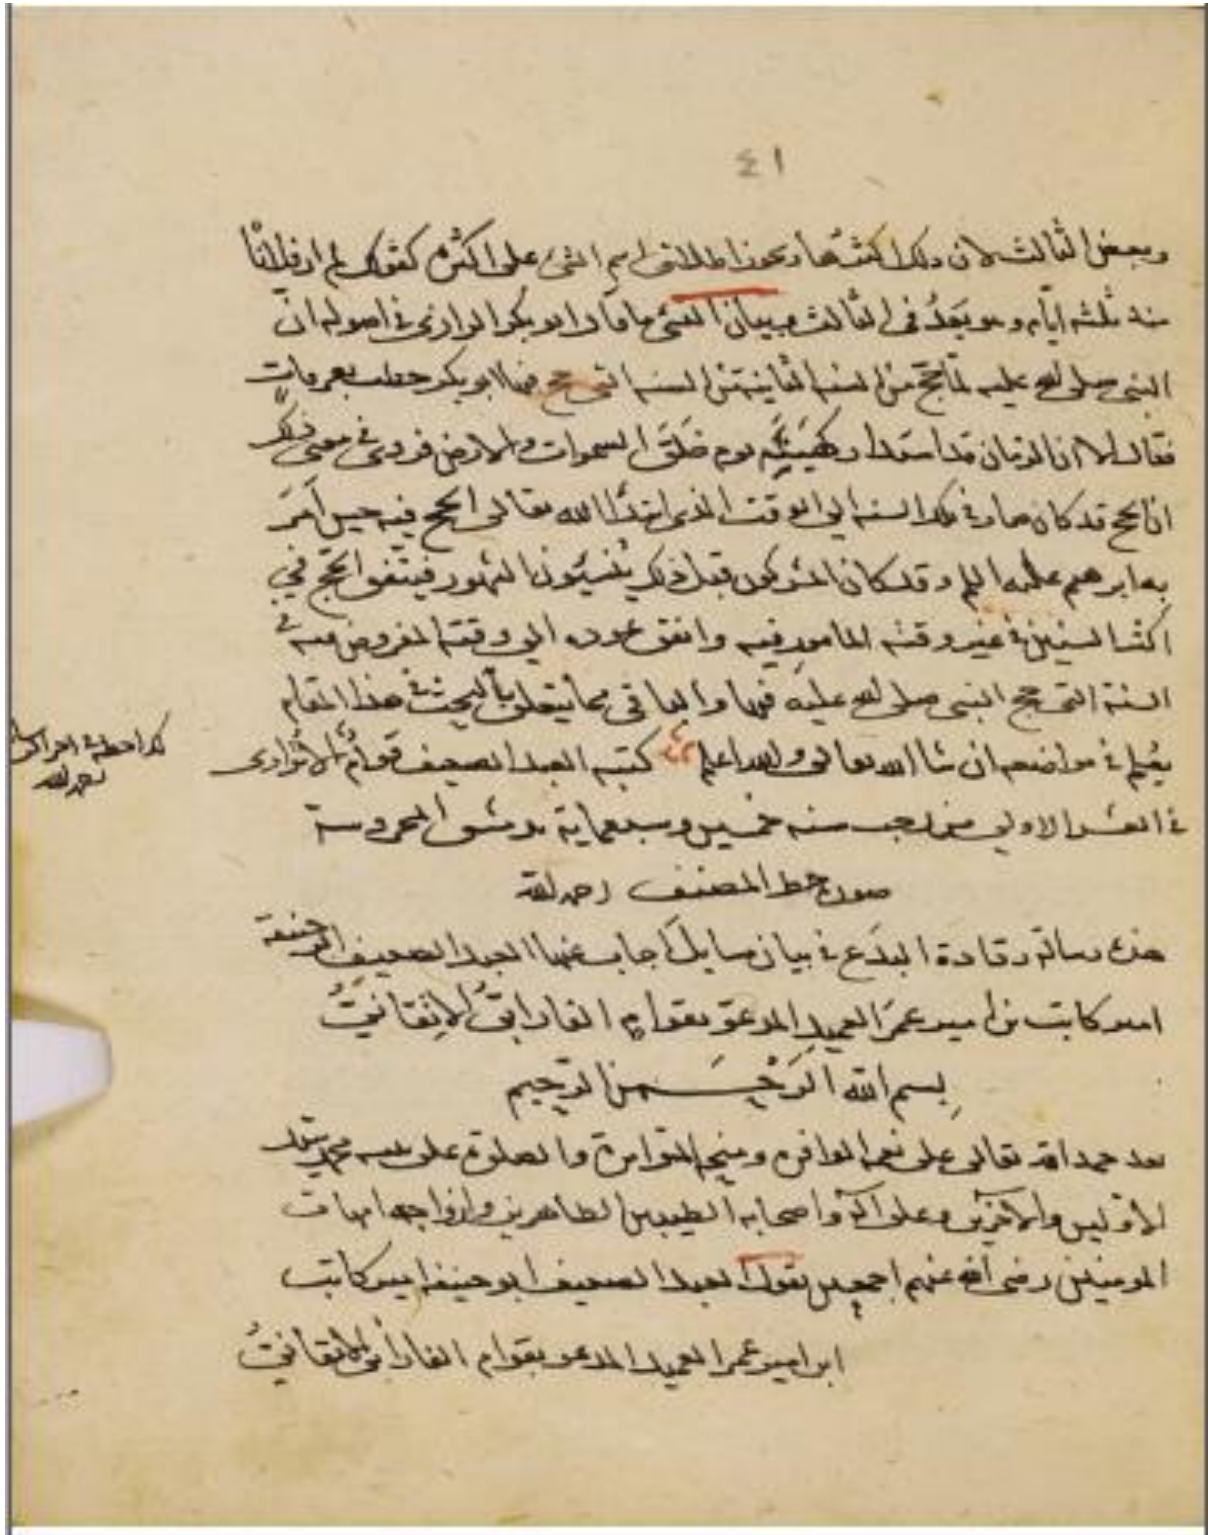 ٤١
وبعض الثالث لان ذلك اكثرها ويجوز اطلاق اسم الشئ على اكثره كقولك لم ار فلانا
منذ ثلثة ايام وهو بَعْدُ في الثالث وبيان النسئ ما قال ابو بكر الرازى في اصوله ان
النبى صلى الله عليه لما حج من السنة الثانية من السنة التى حج فيها ابو بكر خطب بعرفات
فقال الا ان الزمان قد استدار كهيئته يوم خلق السموات والارض فروى في معنى ذلك
ان الحج قد كان صار في تلك السنة الى الوقت الذى ابتدأ الله تعالى الحج فيه حين أمَرَ
به ابرهيم عليه السلم وقد كان المشركون قبل ذلك ينسئون الشهور فيتفق الحج في
اكثر السنين في غير وقته المامور فيه واتفق عوده الى وقته المفروض فيه في
السنة التى حج النبى صلى الله عليه فيها والباقى مما يتعلق بالبحث في هذا المقام
يُعلم في مواضعه ان شا الله تعالى والله اعلم كتبه العبد الضعيف قوام الاترارى
في العشر الاولى من رجب سنة خمسين وسبعماية بدمشق المحروسة
صورة خط المصنف رحمه الله
هذه رسالة وقادة البدَع في بيان مسايل اجاب عنها العبد الضعيف ابو حنيفة
امير كاتب بن امير عمر العميد المدعو بقوام الفارابىُّ الاتقانىُّ
بسم الله الرحمن الرحيم
بعد حمد الله تعالى على نعمه الوافرة ومنحه المتواترة والصلوة على نبيه محمد سيد
الاولين والاخرين وعلى آله واصحابه الطيبين الطاهرين وازواجه امهات
المومنين رضى الله عنهم اجمعين يقول العبد الضعيف ابو حنيفة امير كاتب
ابن امير عمر العميد المدعو بقوام الفارابى الاتقانىُّ